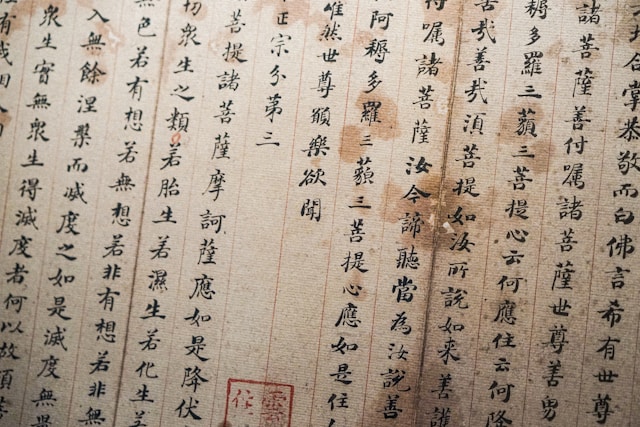 地合掌恭敬而白佛言希有世尊
諸菩薩善付囑諸菩薩世尊善男
耨多羅三藐三菩提心云何應住云何降
善哉善哉須菩提如汝所說如來善護
付囑諸菩薩汝今諦聽當為汝說善
阿耨多羅三藐三菩提心應如是住
唯然世尊願樂欲聞
正宗分第三
菩提諸菩薩摩訶薩應如是降伏
切眾生之類若胎生若濕生若化生若
色若有想若無想若非有想若非無
入無餘涅槃而滅度之如是滅度無量
眾生實無眾生得滅度者何以故須菩
有我相人